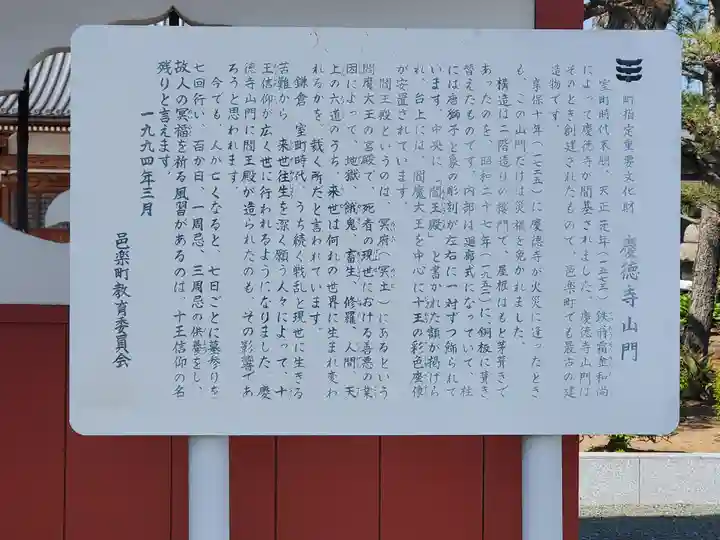 町指定重要文化財　慶徳寺山門
室町時代末期、天正元年（一五七三）鉄心霜金和尚
によって慶徳寺が開基されました。慶徳寺山門は
そのとき創建されたもので、邑楽町でも最古の建
造物です。
享保十年（一七二五）に慶徳寺が火災に遭ったとき
も、この山門だけは災禍を免かれました。
構造は二階造りの楼門で、屋根はもと茅葺きで
あったのを、昭和二十七年（一九五二）に銅板に葺き
替えたものです。内部は廻廊式になっていて、柱
には唐獅子と象の彫刻が左右に一対ずつ飾られて
います。中央に「閻王殿」と書かれた額が掲げら
れ、台上には、閻魔大王を中心に十王の彩色座像
が安置されています。
閻王殿というのは、冥府（冥土）にあるという
閻魔大王の宮殿で、死者の現世における善悪の業
因によって、地獄、餓鬼、畜生、修羅、人間、天
上の六道のうち、来世は何れの世界に生まれ変わ
れるかを、裁く所だと言われています。
鎌倉、室町時代、うち続く戦乱と現世に生きる
苦難から、来世往生を深く願う人々によって、十
王信仰が広く世に行われるようになりました。慶
徳寺山門に閻王殿が造られたのも、その影響であ
ろうと思われます。
今でも、人が亡くなると、七日ごとに墓参りを
七回行い、百か日、一周忌、三周忌の供養をし、
故人の冥福を祈る風習があるのは、十王信仰の名
残りと言えます。
一九九四年三月
邑楽町教育委員会